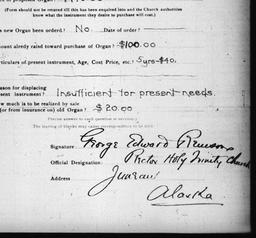 (Form should not be returned till this has been enquired into and the Church authorities
know what the instrument they desire to purchase will cost.)
a new Organ been ordered? No. Date of order?
ount already raised toward purchase of Organ? $100.00
rticulars of present instrument, Age, Cost Price, etc.? 5yrs-$40.
eason for displacing
esent instrument? Insufficient for present needs.
ow much is to be realized by sale
(or from insurance) on old Organ? $20.00
Precise answer to each question is necessary.
The leaving of blanks may cause correspondence to be void.
Signature George Edward
Official Designation: Rector Holy Trinity Church
Address Juneau
Alaska